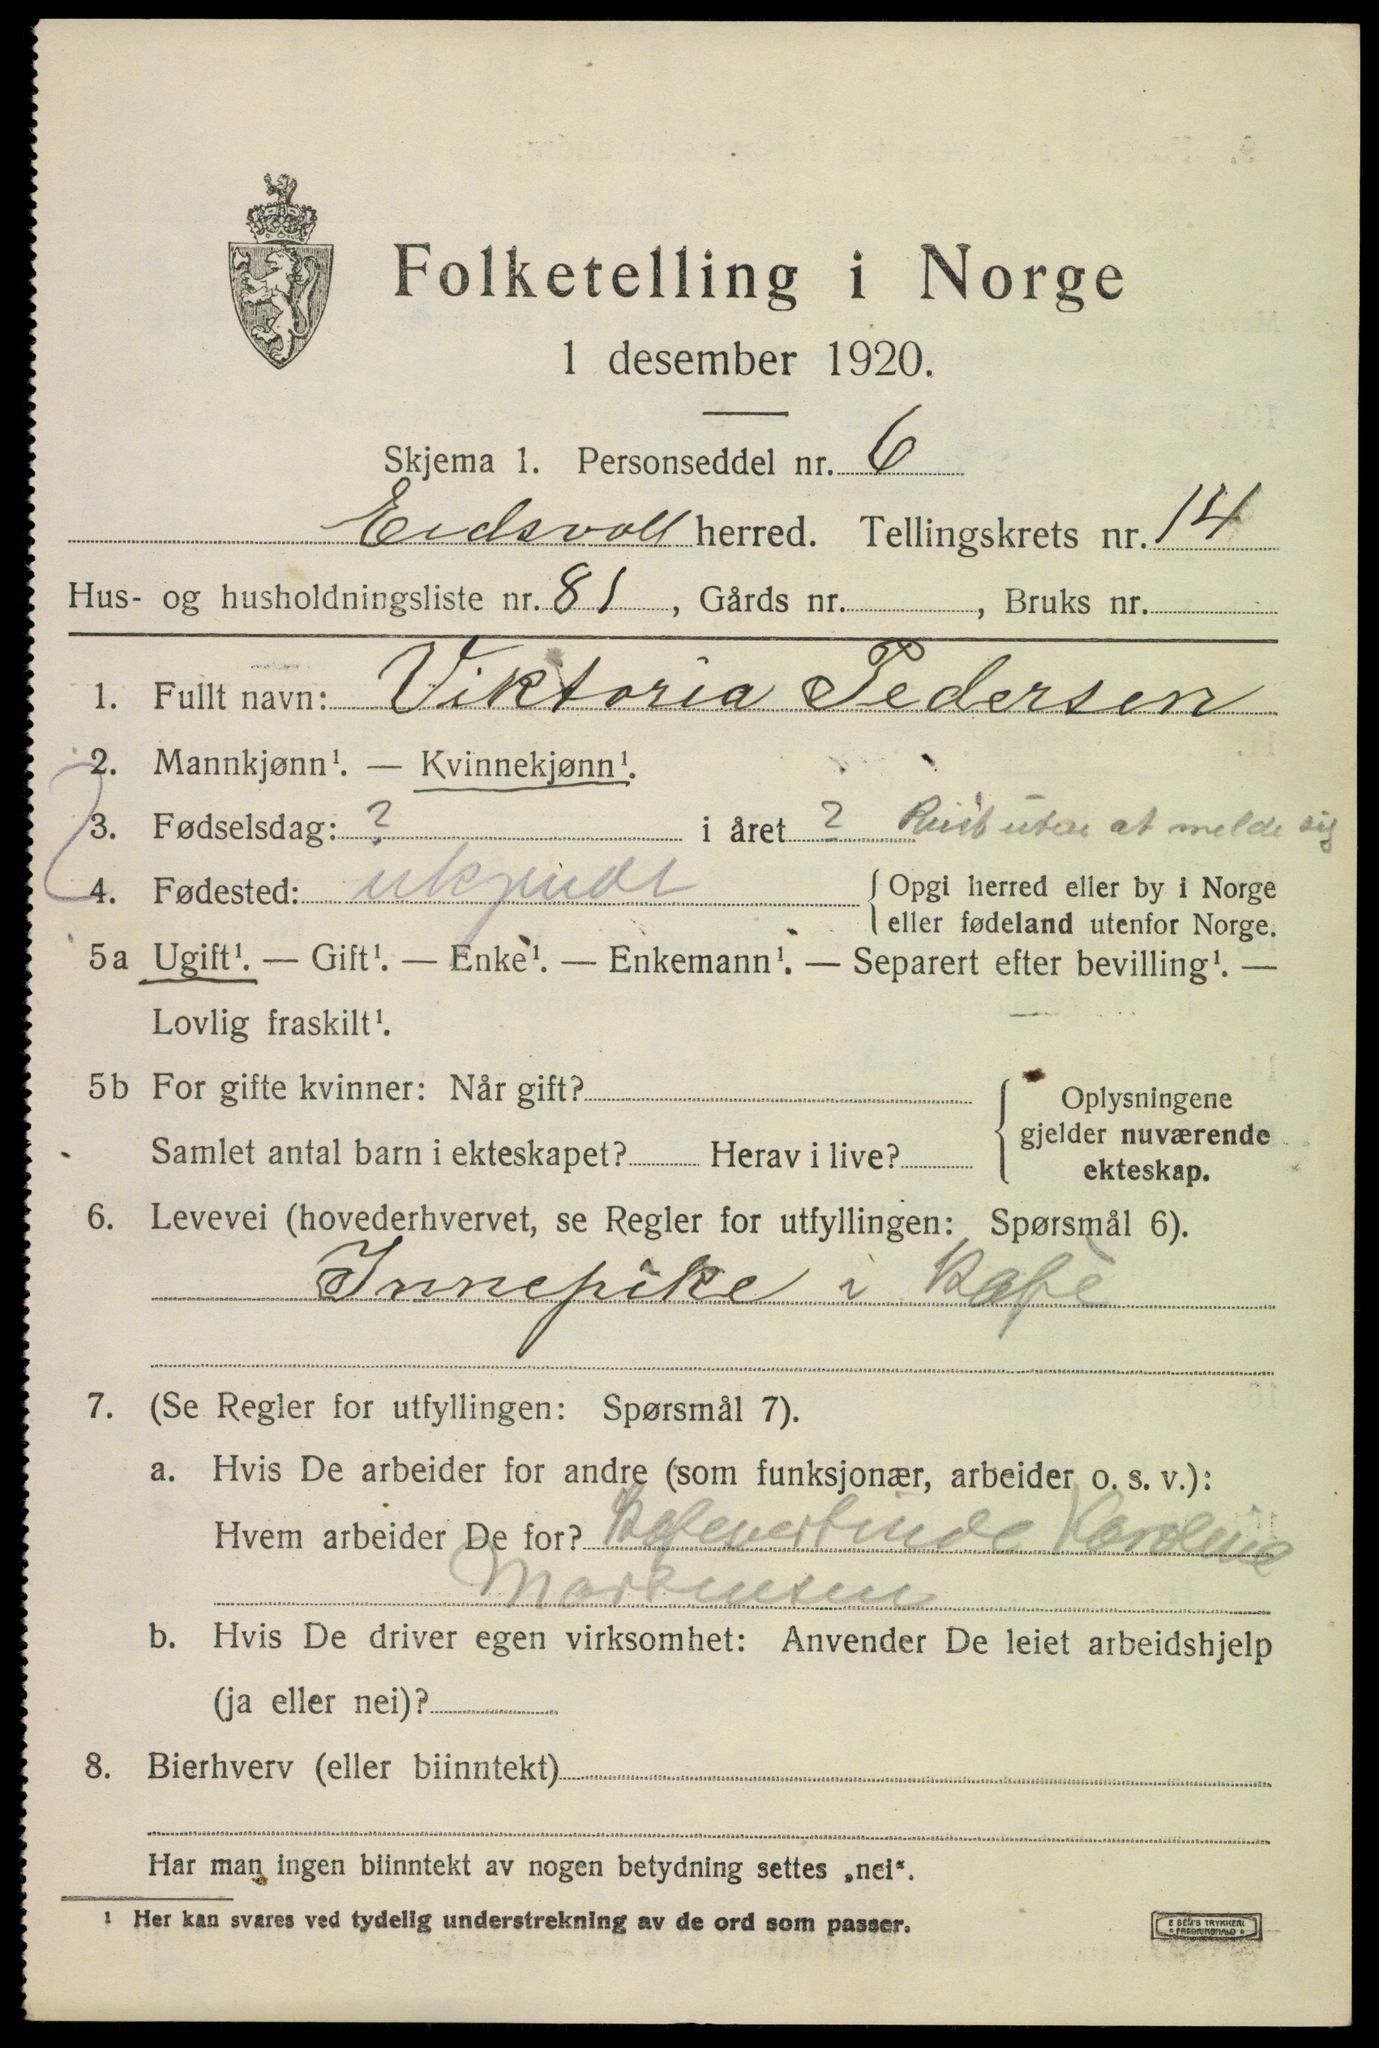 Folketelling i Norge
1 desember 1920.
Skjema 1. Personseddel nr. 6
Eidsvoll herred. Tellingskrets nr. 14
Hus- og husholdningsliste nr. 81, Gårds nr. , Bruks nr.
1. Fullt navn: Viktoria Pedersen
2. Mannkjønn¹. — Kvinnekjønn¹.
3. Fødselsdag: ? i året ? Reist uten at melde sig
4. Fødested: ukjendt { Opgi herred eller by i Norge
eller fødeland utenfor Norge.
5a Ugift¹. — Gift¹. — Enke¹. — Enkemann¹. — Separert efter bevilling¹. —
Lovlig fraskilt¹.
5b For gifte kvinner: Når gift? { Oplysningene
gjelder nuværende
Samlet antal barn i ekteskapet? Herav i live?
ekteskap.
6. Levevei (hovederhvervet, se Regler for utfyllingen: Spørsmål 6).
Innepike i Kafè
7. (Se Regler for utfyllingen: Spørsmål 7).
a. Hvis De arbeider for andre (som funksjonær, arbeider o. s. v.):
Hvem arbeider De for? Kafevertinde Karoline
Martinsen
b. Hvis De driver egen virksomhet: Anvender De leiet arbeidshjelp
(ja eller nei)?
8. Bierhverv (eller biinntekt)
Har man ingen biinntekt av nogen betydning settes „nei“.
¹ Her kan svares ved tydelig understrekning av de ord som passer.
E SEM'S TRYKKERI
FREDRIKSHALD